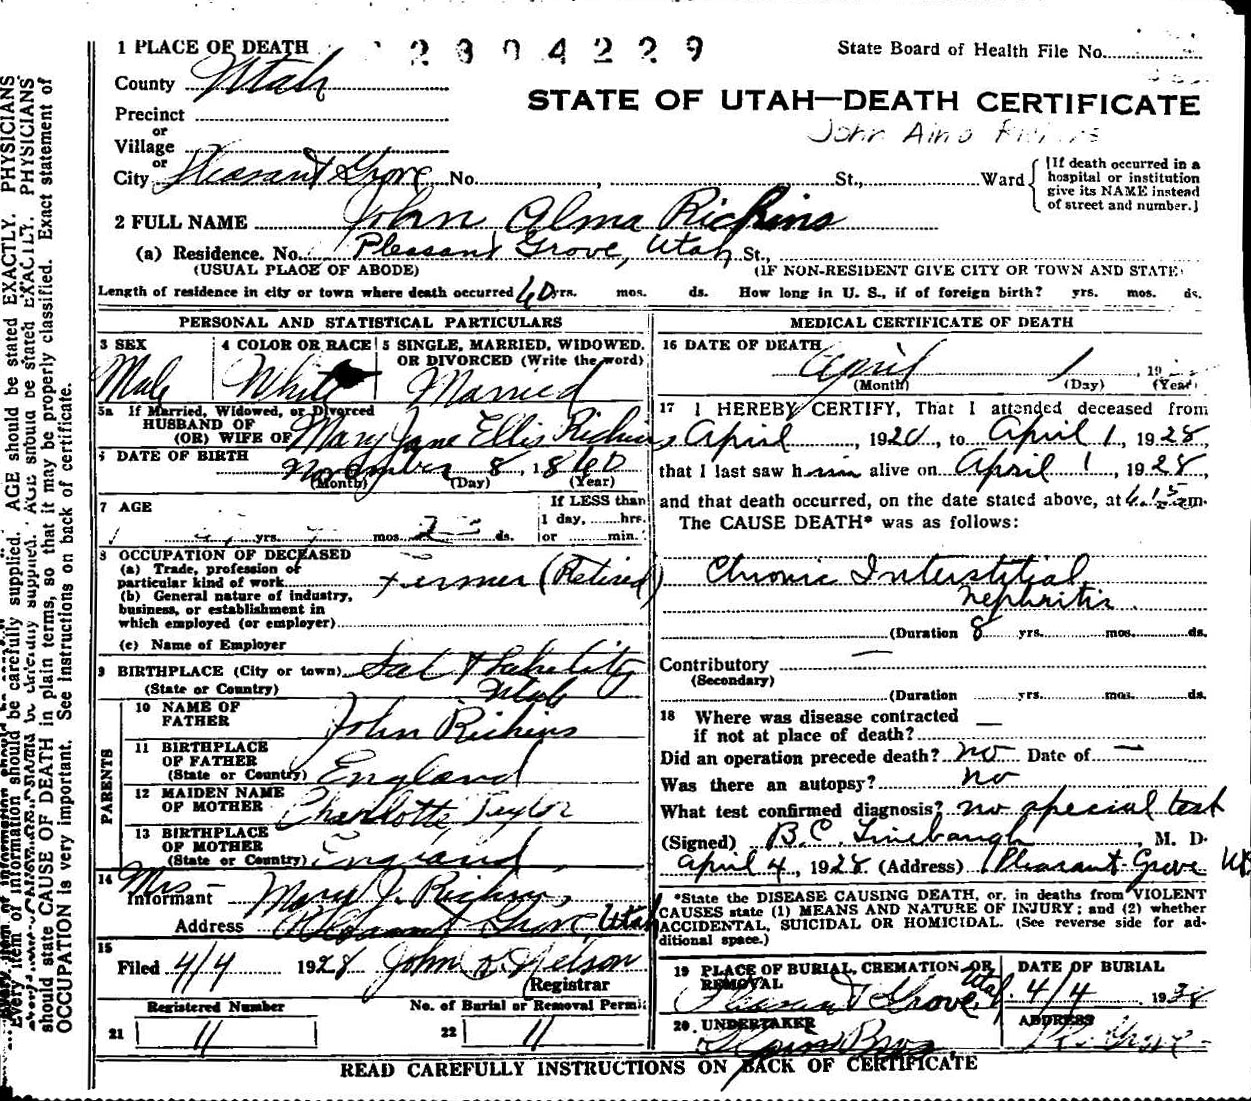 1 PLACE OF DEATH 2304229 State Board of Health File No.
County Utah
STATE OF UTAH—DEATH CERTIFICATE
Precinct
or
John
Village
or
City Pleasant Grove No. , St., Ward
[If death occurred in a
hospital or institution
give its NAME instead
of street and number.]
2 FULL NAME John Alma Rickins
(a) Residence. No. Pleasant Grove, Utah St.,
(USUAL PLACE OF ABODE) (IF NON-RESIDENT GIVE CITY OR TOWN AND STATE)
Length of residence in city or town where death occurred 60 yrs. mos. ds. How long in U. S., if of foreign birth? yrs. mos. ds.
PERSONAL AND STATISTICAL PARTICULARS
3 SEX 4 COLOR OR RACE 5 SINGLE, MARRIED, WIDOWED,
OR DIVORCED (Write the word)
Male White Married
5a If Married, Widowed, or Divorced
HUSBAND OF
(OR) WIFE OF Mary Jane Ellis Rickins
6 DATE OF BIRTH November 8, 1860
(Month) (Day) (Year)
7 AGE If LESS than
1 day, hrs.
yrs. mos. 23 ds. or min.
8 OCCUPATION OF DECEASED
(a) Trade, profession or
particular kind of work Farmer (Retired)
(b) General nature of industry,
business, or establishment in
which employed (or employer)
(c) Name of Employer
9 BIRTHPLACE (City or town) Salt Lake City
(State or Country) Utah
PARENTS
10 NAME OF
FATHER John Rickins
11 BIRTHPLACE
OF FATHER
(State or Country) England
12 MAIDEN NAME
OF MOTHER Charlotte Taylor
13 BIRTHPLACE
OF MOTHER
(State or Country) England
14 Mrs.
Informant Mary J. Rickins,
Address Pleasant Grove, Utah
15
Filed 4/4 1928 John O. Nelson
Registrar
Registered Number No. of Burial or Removal Permit
21 11 22 11
MEDICAL CERTIFICATE OF DEATH
16 DATE OF DEATH
April 1 19
(Month) (Day) (Year)
17 I HEREBY CERTIFY, That I attended deceased from
April , 1920, to April 1, 1928,
that I last saw him alive on April 1, 1928,
and that death occurred, on the date stated above, at 6:15 a.m.
The CAUSE DEATH* was as follows:
Chronic Interstitial
Nephritis.
(Duration 8 yrs. mos. ds.
Contributory —
(Secondary)
(Duration yrs. mos. ds.
18 Where was disease contracted —
if not at place of death?
Did an operation precede death? no Date of —
Was there an autopsy? no
What test confirmed diagnosis? no special test
(Signed) B.C. Linebaugh M. D.
April 4, 1928. (Address) Pleasant Grove Ut
*State the DISEASE CAUSING DEATH, or, in deaths from VIOLENT
CAUSES state (1) MEANS AND NATURE OF INJURY; and (2) whether
ACCIDENTAL, SUICIDAL OR HOMICIDAL. (See reverse side for ad-
ditional space.)
19 PLACE OF BURIAL, CREMATION OR
REMOVAL DATE OF BURIAL
Pleasant Grove, Utah. 4/4 1928
20. UNDERTAKER ADDRESS
Bros. Pl. Grove
READ CAREFULLY INSTRUCTIONS ON BACK OF CERTIFICATE
Every item of information should be carefully supplied. AGE should be stated EXACTLY. PHYSICIANS
should state CAUSE OF DEATH in plain terms, so that it may be properly classified. Exact statement of
OCCUPATION is very important. See instructions on back of certificate.